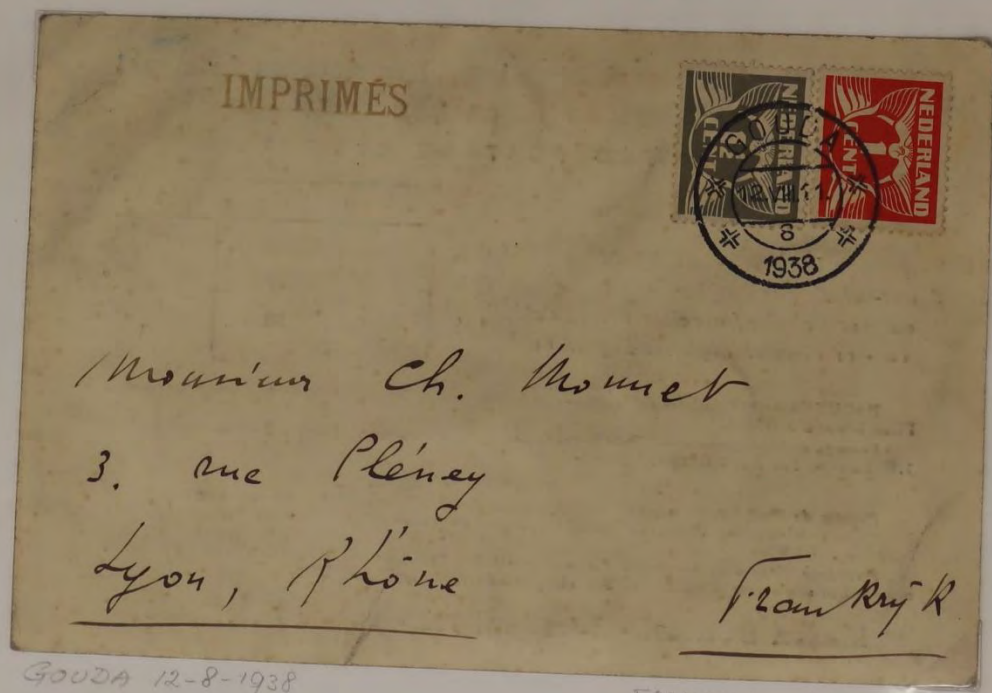 IMPRIMÉS
NEDERLAND
CENT
NEDERLAND
1
CENT
GOUDA
8
1938
Monsieur Ch. Monnet
3. rue Pléney
Lyon, Rhône
Frankrijk
GOUDA 12-8-1938